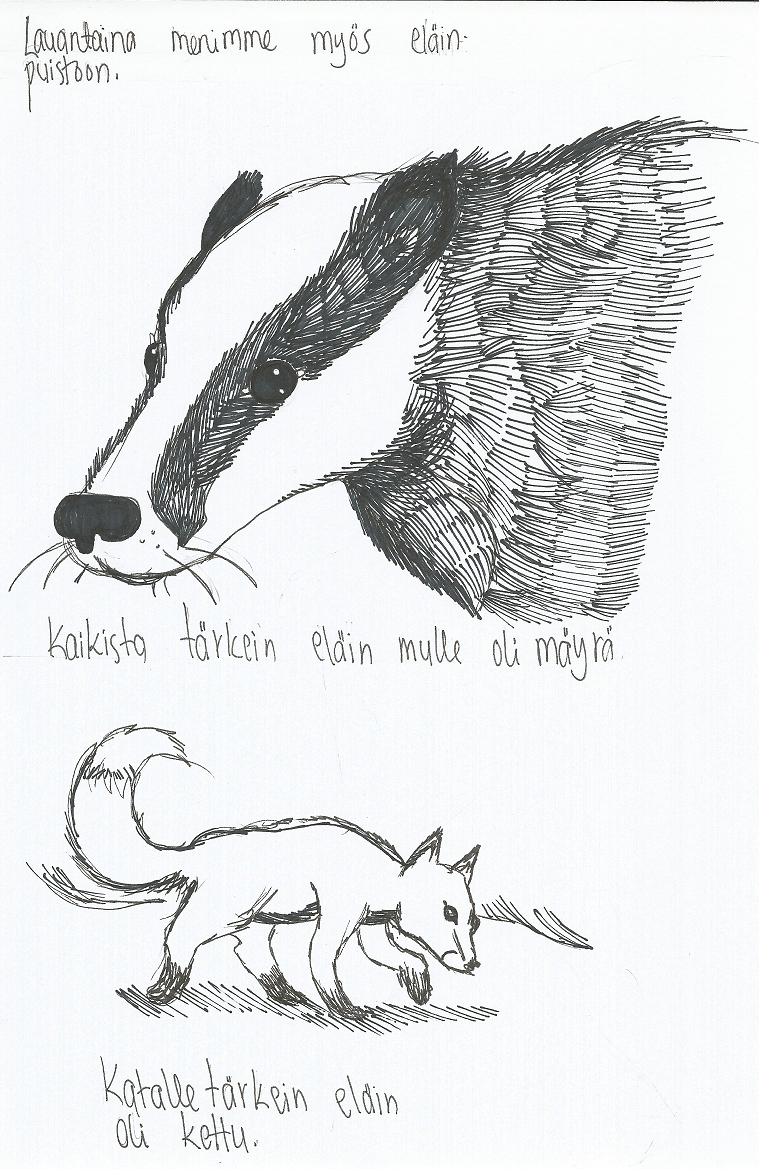 Lauantaina menimme myös eläin-
puistoon.
Kaikista tärkein eläin mulle oli mäyrä.
Katalle tärkein eläin
oli kettu.